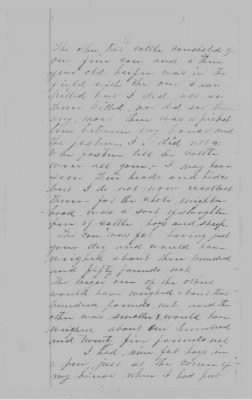 The other two cattle consisted of
one fine cow and a three
year old heifer was in the
field with the one I saw
killed but I did not see
them killed, nor did see them
any more there was a picket
line between my house and
the pasture, I did not go
to the pasture till the cattle
were all gone, I may have
seen their heads and hides
but I do not now recollect
them for the whole neighbor
hood was a sort of slaughter
pen of cattle hogs and sheep.
The cow was fat having just
gone dry and would have
weighed about three hundred
and fifty pounds net.
The larger one of the others
would have weighed about two
hundred pounds net and the
other was smaller & would have
weighed about one hundred
and twenty five pounds net.
I had nine fat hogs in
a pen, just at the corner of
my house, when I had put